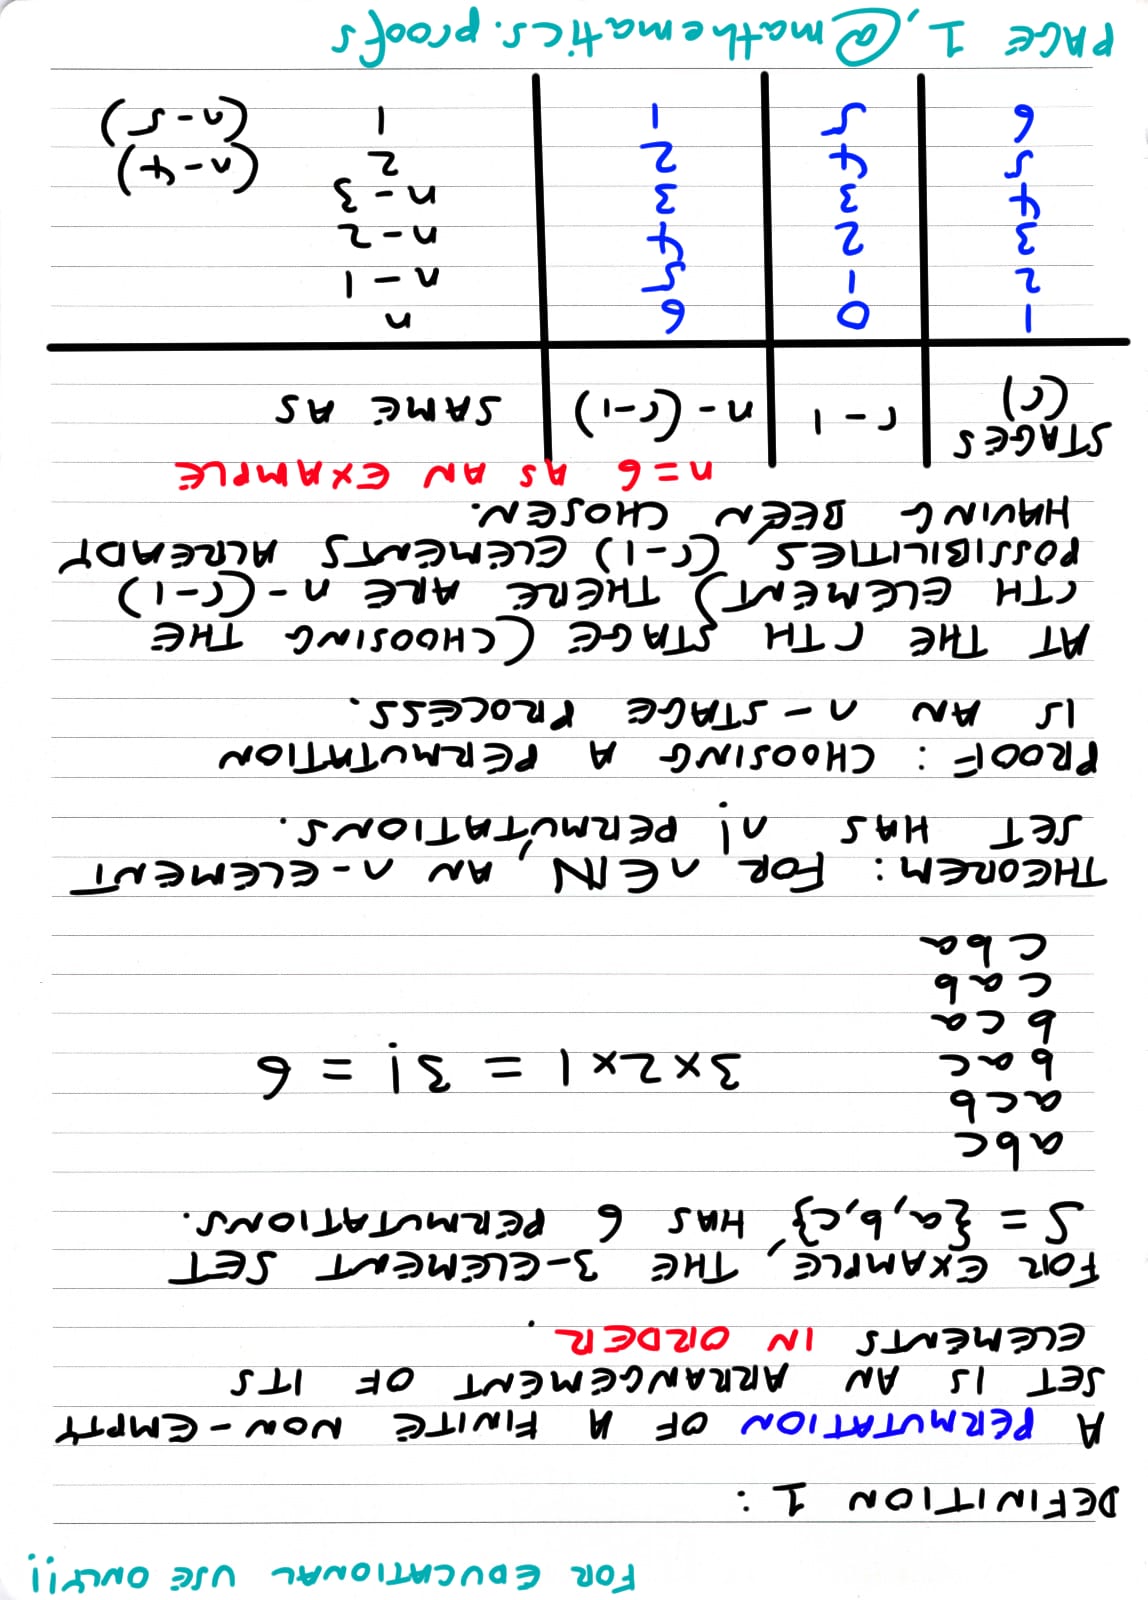 FOR EDUCATIONAL USE ONLY!!
DEFINITION 1 :
A PERMUTATION OF A FINITE NON-EMPTY
SET IS AN ARRANGEMENT OF ITS
ELEMENTS IN ORDER.
FOR EXAMPLE, THE 3-ELEMENT SET
S = {a,b,c} HAS 6 PERMUTATIONS.
abc
acb
bac
3×2×1 = 3! = 6
bca
cab
cba
THEOREM: FOR n∈ℕ, AN n-ELEMENT
SET HAS n! PERMUTATIONS.
PROOF: CHOOSING A PERMUTATION
IS AN n-STAGE PROCESS.
AT THE rTH STAGE (CHOOSING THE
rTH ELEMENT) THERE ARE n-(r-1)
POSSIBILITIES, (r-1) ELEMENTS ALREADY
HAVING BEEN CHOSEN.
n=6 AS AN EXAMPLE
STAGES (r) r-1 n-(r-1) SAME AS
1 0 6 n
2 1 5 n-1
3 2 4 n-2
4 3 3 n-3
5 4 2 2 (n-4)
6 5 1 1 (n-5)
PAGE 1, @mathematics.proofs